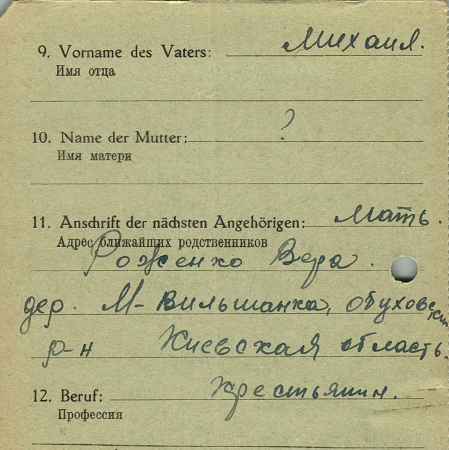 9. Vorname des Vaters: Михаил.
Имя отца
10. Name der Mutter: ?
Имя матери
11. Anschrift der nächsten Angehörigen: Мать.
Адрес ближайших родственников
Роженко Вера.
дер. М-Вильшанка, обуховский
р-н Киевская область.
12. Beruf: Крестьянин.
Профессия